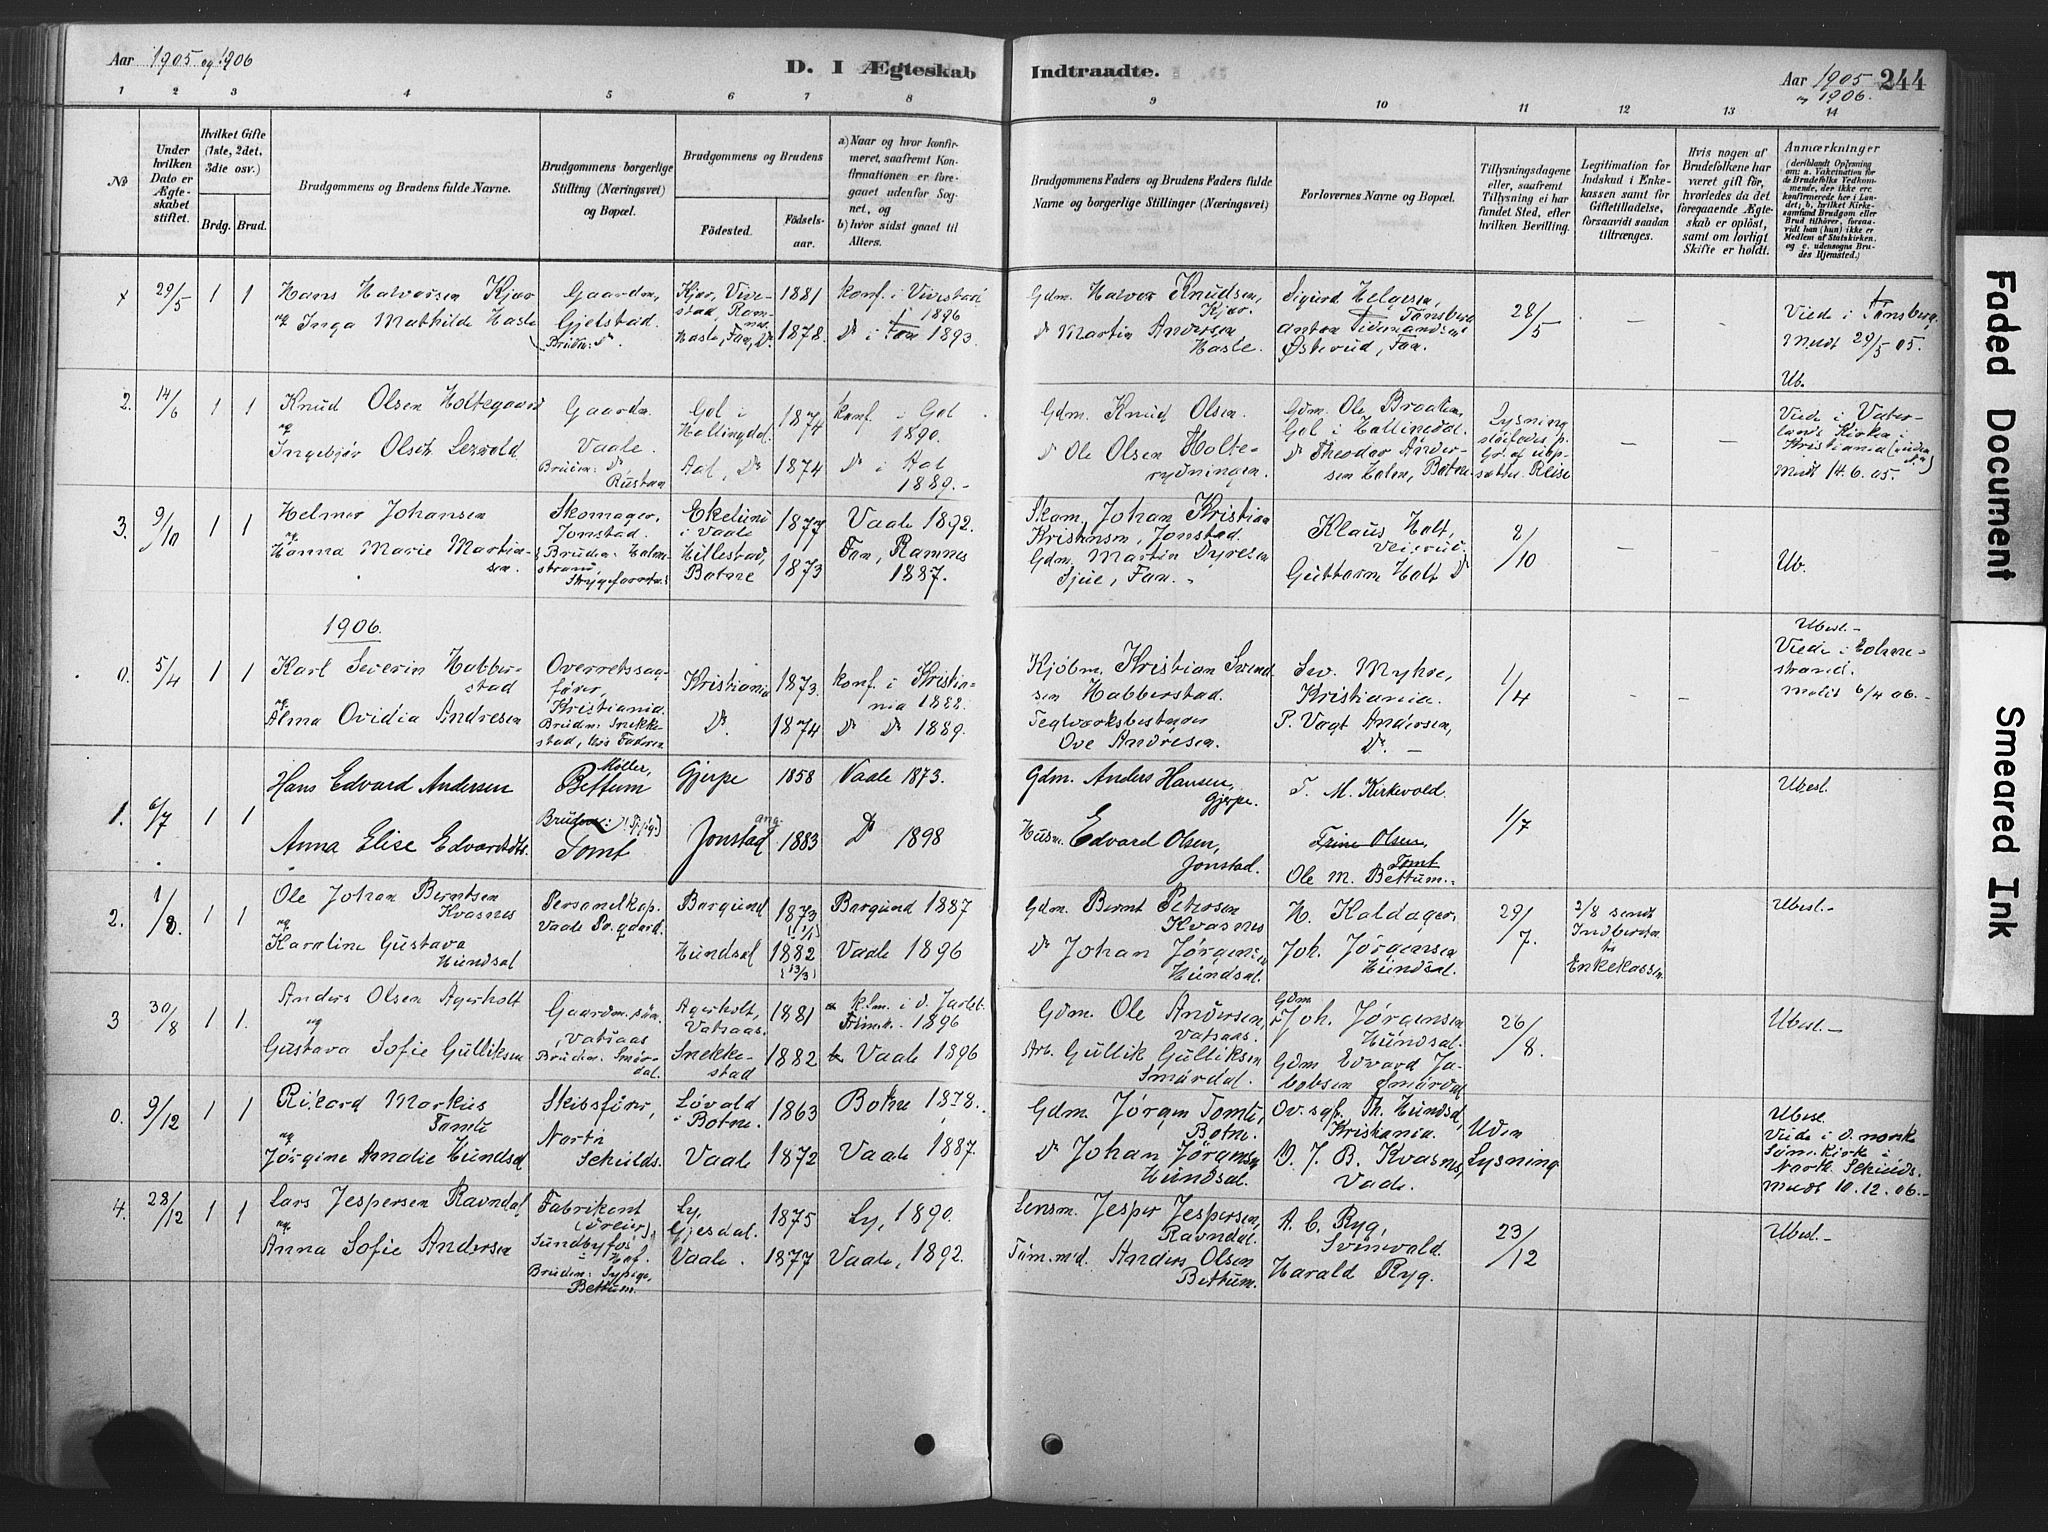 Aar 1905 og 1906
D. I Ægteskab
Indtraadte.
Aar 1905 244
og 1906.
1 2 3 4 5 6 7 8 9 10 11 12 13 14
No
Under hvilken Dato er Ægteskabet stiftet.
Hvilket Gifte (1ste, 2det, 3die osv.)
Brdg. Brud.
Brudgommens og Brudens fulde Navne.
Brudgommens borgerlige Stilling (Næringsvei) og Bopæl.
Brudgommens og Brudens
Fødested.
Fødselsaar.
a) Naar og hvor konfirmeret, saafremt Konfirmationen er foregaaet udenfor Sognet, og
b) hvor sidst gaaet til Alters.
Brudgommens Faders og Brudens Faders fulde Navne og borgerlige Stillinger (Næringsvei)
Forlovernes Navne og Bopæl.
Tillysningsdagene eller, saafremt Tillysning ei har fundet Sted, efter hvilken Bevilling.
Legitimation for Indskud i Enkekassen samt for Giftetilladelse, forsaavidt saadan tiltrænges.
Hvis nogen af Brudefolkene har været gift før, hvorledes da det foregaaende Ægteskab er opløst, samt om lovligt Skifte er holdt.
Anmærkninger
(deriblandt Oplysning om: a. Vakcination for de Brudefolks Vedkommende, der ikke ere konfirmerede her i Landet, b, hvilket Kirkesamfund Brudgom eller Brud tilhører, forsaavidt han (hun) ikke er Medlem af Statskirken, og c. udensogns Brudes Hjemsted.)
29/5 1 1 Hans Halvorsen Kjær
og Inga Mathilde Hasle
Gaardm.
Gjelstad.
Brudn: Do.
Kjær, Vivestad, Ramnes.
Hasle, Fon, Do.
1881
1878.
Konf. i Vivestad 1896
Do i Fon 1893.
Gdm. Halvor Knudsen, Kjær.
Do Martin Andersen Hasle.
Sigurd Helgesen, Tønsberg
Anton Tidemandsen Østerud, Fon.
28/5 - -
Viede i Tønsberg
Medt 29/5 05.
Ub.
2. 14/6 1 1 Knud Olsen Holtegaard
og
Ingebjør Olsdt.
Gaardm.
Vaale.
Bruden: Do
Rustan
Gol i Hallingdal.
Aal, Do
1874
1874
Konf. i Gol 1890.
Do i Aal 1889.-
Gdm. Knud Olsen.
Do Ole Olsen Holterydningen.
Gdm. Ole Braaten, Gol i Hallingdal.
Do Theodor Andersen Holen, Botne
Lysning
- -
Viede i Vaterlands Kirke i Kristiania
Medt 14.6.05.
3. 9/10 1 1 Helmer Johansen
og
Hanna Marie Martinsen.
Skomager, Jonstad.
Bruden: Holmstrand,
Ekelund i Vaale
Hillestad, Botne
1877
1873
Vaale 1892.
Fon, Ramnes 1887.
Skom. Johan Kristian Kristiansen, Jonstad.
Gdm. Martin Syresen Sjue, Fon.
Klaus Holt, Veierud.
Guttorm Holt Do
2/10 - -
Ub.
1906.
0. 5/4 1 1 Karl Severin Habberstad
og
Alma Ovidia Andresen
Overretssagfører, Kristiania.
Bruden: Snekkestad, hos Fadren
Kristiania
Do.
1873.
1874
Konf. i Kristiania 1888.
Do Do 1889.
Kjøbm. Kristian Svendsen Habberstad.
Teglværksbestyrer Ove Andresen.
Sev. Myhre, Kristiania.
P. Vogt Andersen, Do. -
1/4 - -
Ubesl.-
Viede i Holmestrand.
Medt 6/4 06.-
1. 6/7 1 1 Hans Edvard Andersen
Anna Elise Edvardsdt.
Møller,
Bettum
Bruden: (Tjpige)
Tomt
Gjerpe
Jonstad
1858
1883
Vaale 1873.
Do 1898
Gdm. Anders Hansen, Gjerpe.
Husm. Edvard Olsen, Jonstad.
T. M. Kirkevold.
Trine Olsen, Tomt
Ole M. Bettum.
1/7
Ubesl.
2. 1/8. 1 1 Ole Johan Berntsen Kvasnes
og
Karoline Gustava Hundsal
Personelkap.
Vaale Pr.gaard.
Borgund
Hundsal
1873
1882
(13/3)
Borgund 1887
Vaale 1896
Gdm. Bernt Petersen Kvasnes
Do Johan Jørgensen Hundsal.
H. Haldager
Joh. Jørgensen Hundsal.
29/7.
2/8 sendt Indberetn. til Enkekassen.
Ubesl.-
3 30/8 1 1. Anders Olsen Agerholt
og
Gustava Sofie Gulliksen
Gaardm.søn, Vatsaas
Bruden: Smørdal.
Agerholt, Vatsaas.
Snekkestad
1881
1882
Konf. i d. Jarlsb. Frim. 1896
Vaale 1896
Gdm. Ole Andersen, Vatsaas.
Arb. Gullik Gulliksen Smørdal.
Gdm Joh. Jørgensen Hundsal.
Gdm Edvard Jakobsen Smørdal
26/8.
Ubesl.-
0. 9/12 1 1 Rikard Markus Tomte
og
Jørgine Amalie Hundsal
Skibsfører,
North Schields.
Løvald i Botne.
Vaale
1863
1872
Botne 1878.
Vaale 1887.
Gdm. Jørgen Tomte, Botne.
Do Johan Jørgensen Hundsal.
Ov.sgf. Th. Hundsal, Kristiania.
O. J. B. Kvasnes, Vaale.
Uden Lysning.
Ubesl.
Viede i d. norske Søm.kirke i North Schields.
Medt 10.12.06.-
4. 28/12 1 1 Lars Jespersen Ravndal
og
Anna Sofie Andersen
Fabrikent (dreier), Sundbyfos, Hof.
Bruden: Sypige, Bettum.
Ly, Gjesdal.
Vaale.
1875
1877
Ly, 1890.
Vaale, 1892.
Lensm. Jesper Jespersen, Ravndal.
Tøm.md. Anders Olsen Bettum.
A. C. Ryg, Svinevold.
Harald Ryg.
23/12
Ubesl.-
Faded Document
Smeared Ink